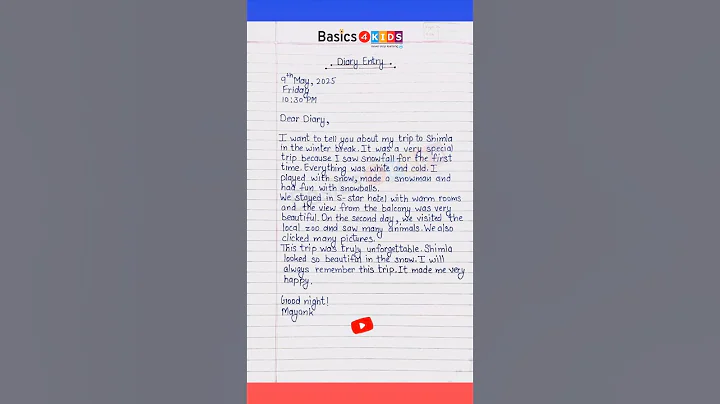 Basics 4 KIDS
Diary Entry
9th May, 2025
Friday
10:30 PM
Dear Diary,
I want to tell you about my trip to Shimla
in the winter break. It was a very special
trip because I saw snowfall for the first
time. Everything was white and cold. I
played with snow, made a snowman and
had fun with snowballs.
We stayed in 5-star hotel with warm rooms
and the view from the balcony was very
beautiful. On the second day, we visited the
local zoo and saw many animals. We also
clicked many pictures.
This trip was truly unforgettable. Shimla
looked so beautiful in the snow. I will
always remember this trip. It made me very
happy.
Good night!
Mayank